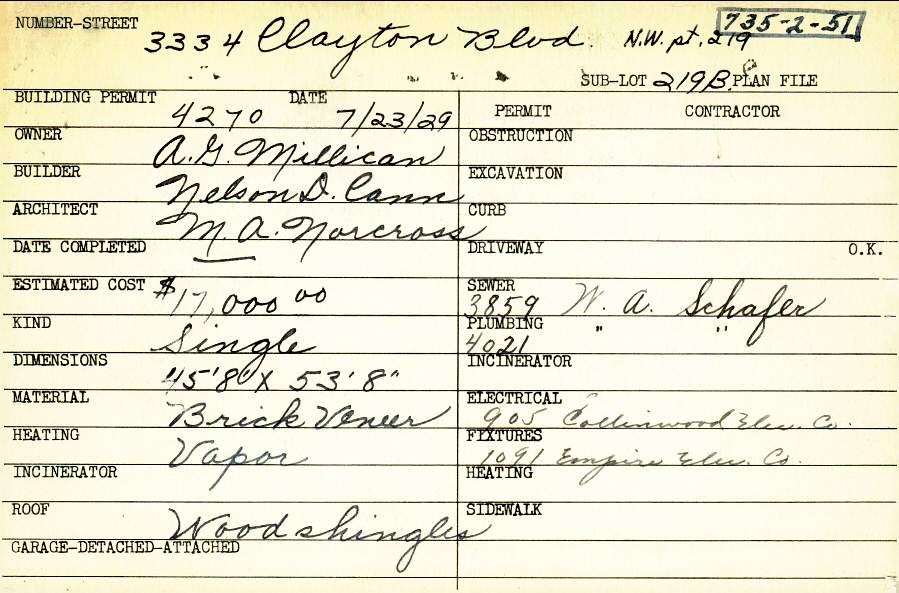 NUMBER-STREET 3334 Clayton Blvd. N.W. pt. 219 735-2-51
SUB-LOT 219B PLAN FILE
BUILDING PERMIT 4270 DATE 7/23/29
PERMIT CONTRACTOR
OWNER A.G. Millican
OBSTRUCTION
BUILDER Nelson D. Cann
EXCAVATION
ARCHITECT M. A. Norcross
CURB
DATE COMPLETED
DRIVEWAY O.K.
ESTIMATED COST $17,000 00
SEWER 3859 W. A. Schafer
KIND Single
PLUMBING 4021 " "
DIMENSIONS 45'8" X 53'8"
INCINERATOR
MATERIAL Brick Veneer
ELECTRICAL 905 Collinwood Elec. Co.
HEATING Vapor
FIXTURES 1091 Empire Elec. Co.
INCINERATOR
HEATING
ROOF Wood shingles
SIDEWALK
GARAGE-DETACHED-ATTACHED